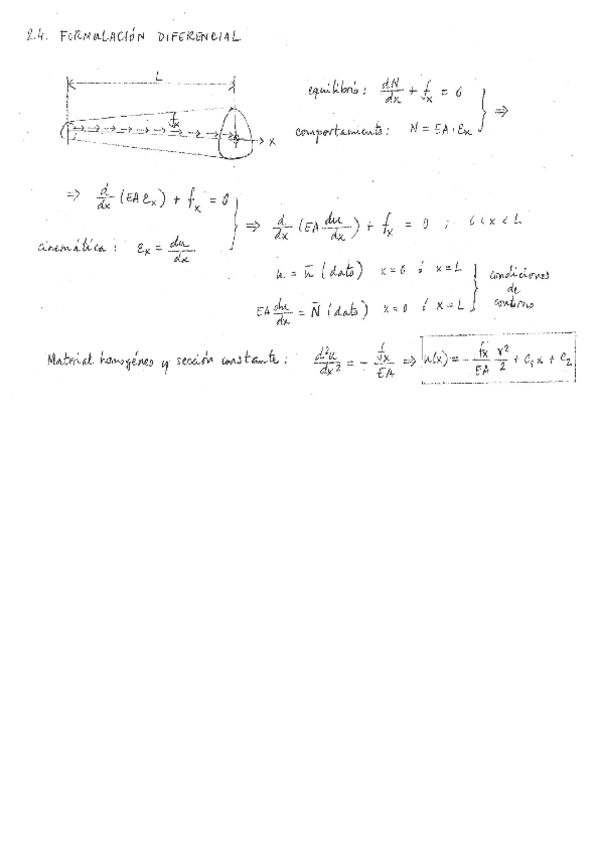 2.4. FORMULACIÓN DIFERENCIAL
L
fx
x
equilibrio: dN/dx + fx = 0
comportamiento: N = EA · εx } ⇒
⇒ d/dx (EA εx) + fx = 0
cinemática: εx = du/dx } ⇒ d/dx (EA du/dx) + fx = 0 ; 0 < x < L
u = ū (dato) x=0 ó x=L
EA du/dx = N̄ (dato) x=0 ó x=L } condiciones de contorno
Material homogéneo y sección constante: d²u/dx² = - fx/EA ⇒ u(x) = - fx/EA x²/2 + C₁x + C₂